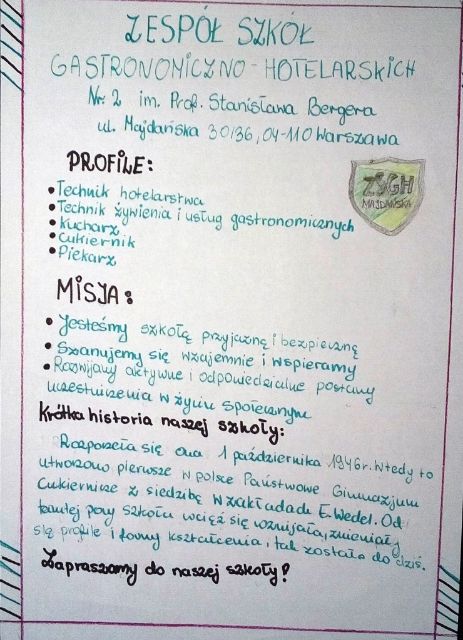 ZESPÓŁ SZKÓŁ
GASTRONOMICZNO-HOTELARSKICH
Nr. 2 im. Prof. Stanisława Bergera
ul. Majdańska 30/36, 04-110 Warszawa
PROFILE:
• Technik hotelarstwa
• Technik żywienia i usług gastronomicznych
• Kucharz
• Cukiernik
• Piekarz
ZSGH
MAJDAŃSKA
MISJA:
• Jesteśmy szkołą przyjazną i bezpieczną
• Szanujemy się wzajemnie i wspieramy
• Rozwijamy aktywne i odpowiedzialne postawy
uczestniczenia w życiu społecznym
Krótka historia naszej szkoły:
Rozpoczęła się ona 1 października 1946r. Wtedy to
utworzono pierwsze w polsce Państwowe Gimnazjum
Cukiernicze z siedzibą w zakładach E.Wedel. Od
tamtej pory szkoła wciąż się rozwijała, zmieniały
się profile i formy kształcenia, tak zostało do dziś.
Zapraszamy do naszej szkoły!